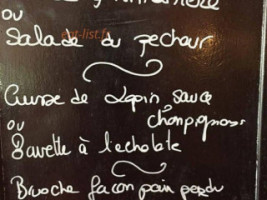 ou
Salade du pecheur
eat-list.fr
Cuisse de Lapin, sauce
champignons
ou
Bavette à l'echalote
Brioche façon pain perdu